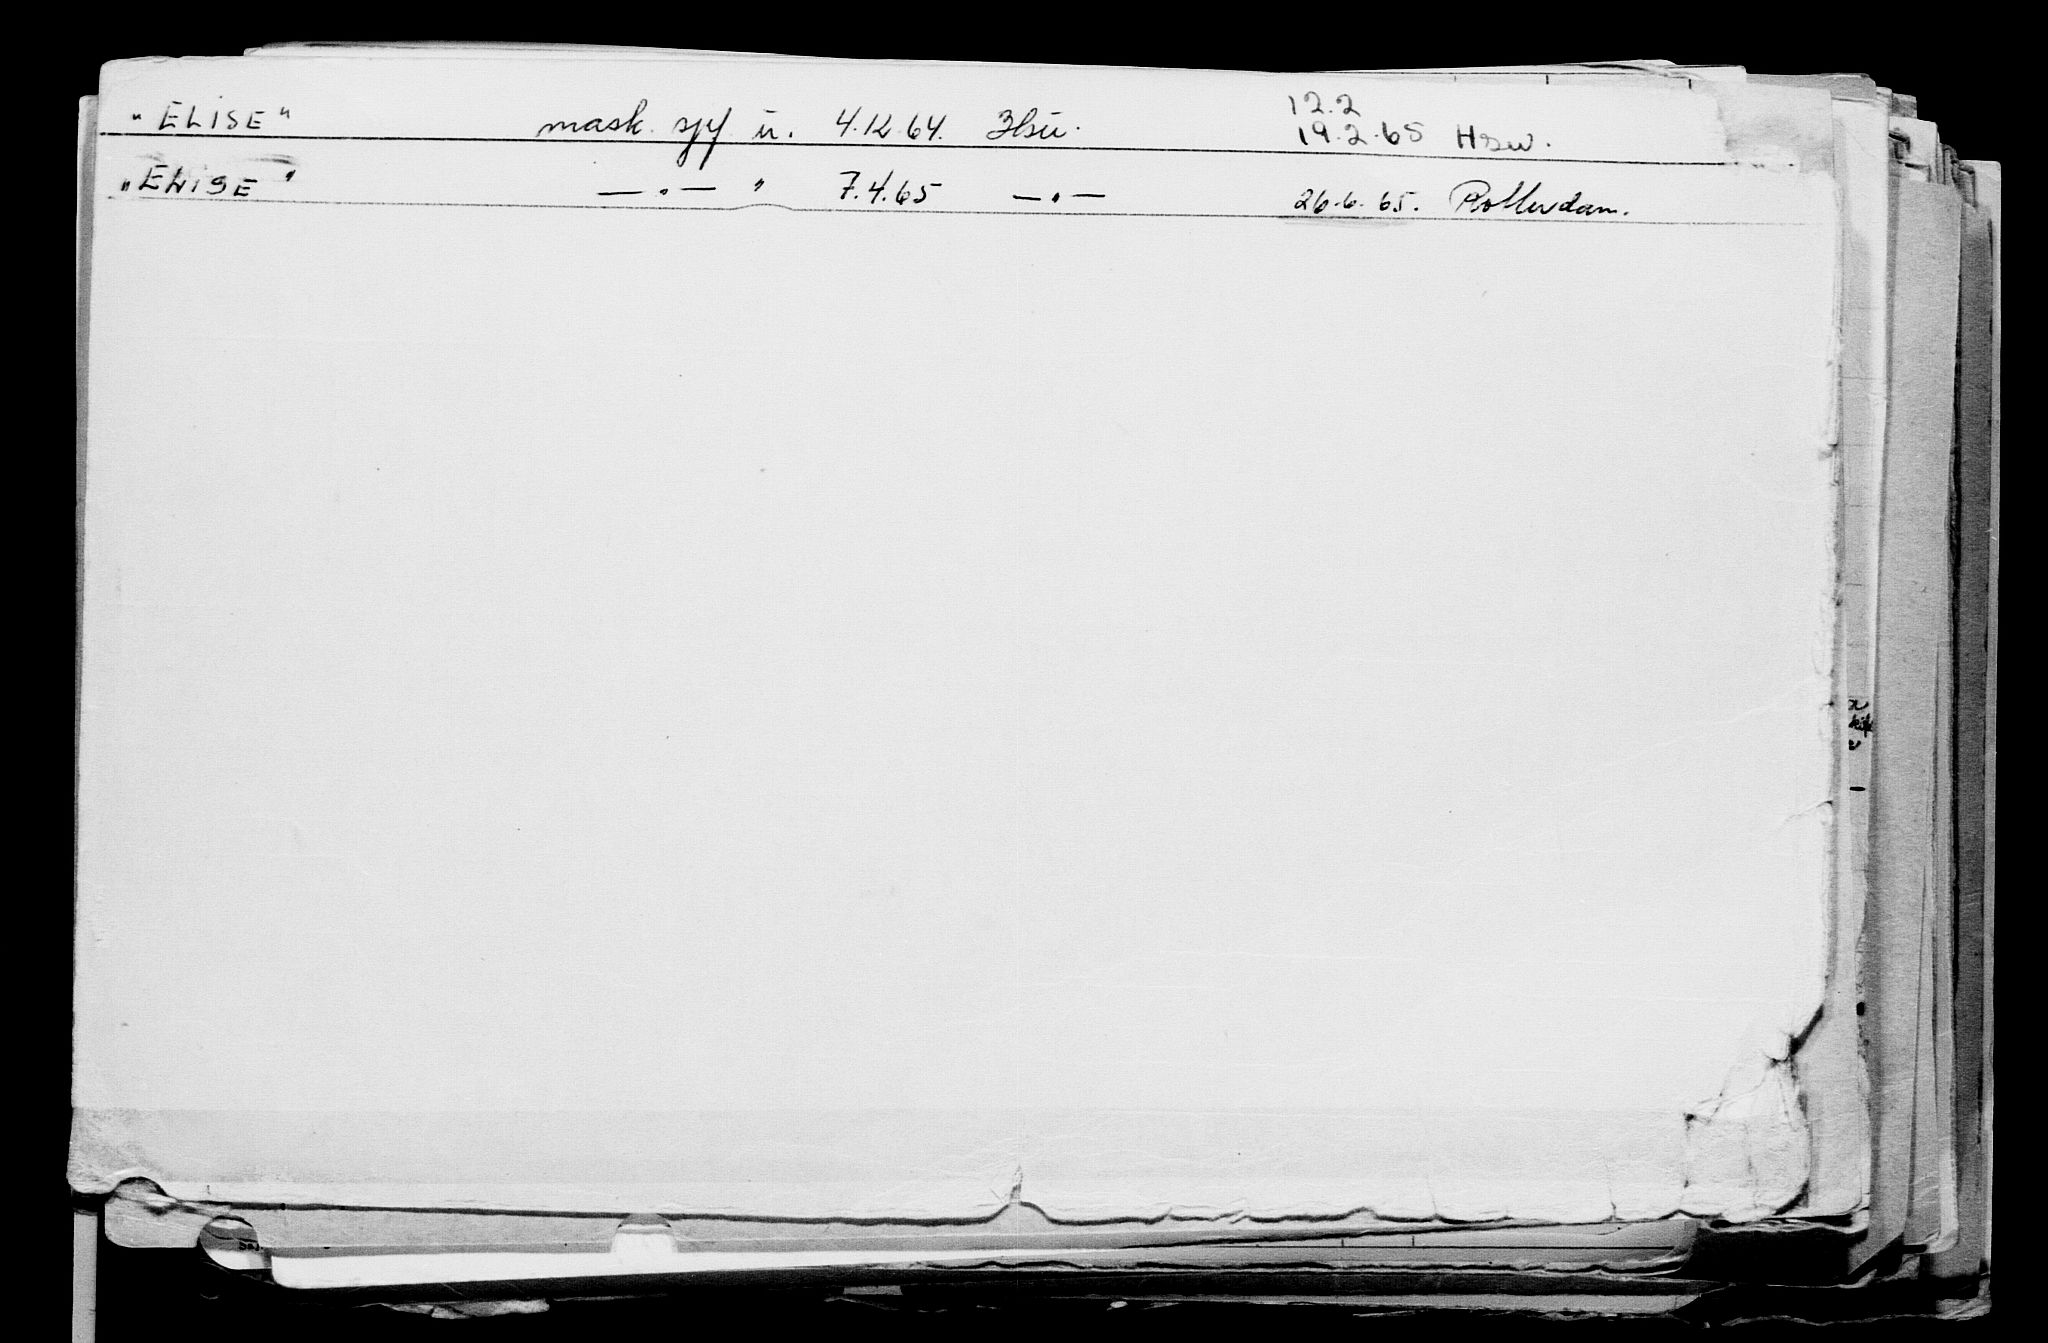 "ELISE" mask. sjf u. 4.12.64. 12.2
19.2.65
"ELISE" — " — " 7.4.65 — " — 26.6.65. Rotterdam.